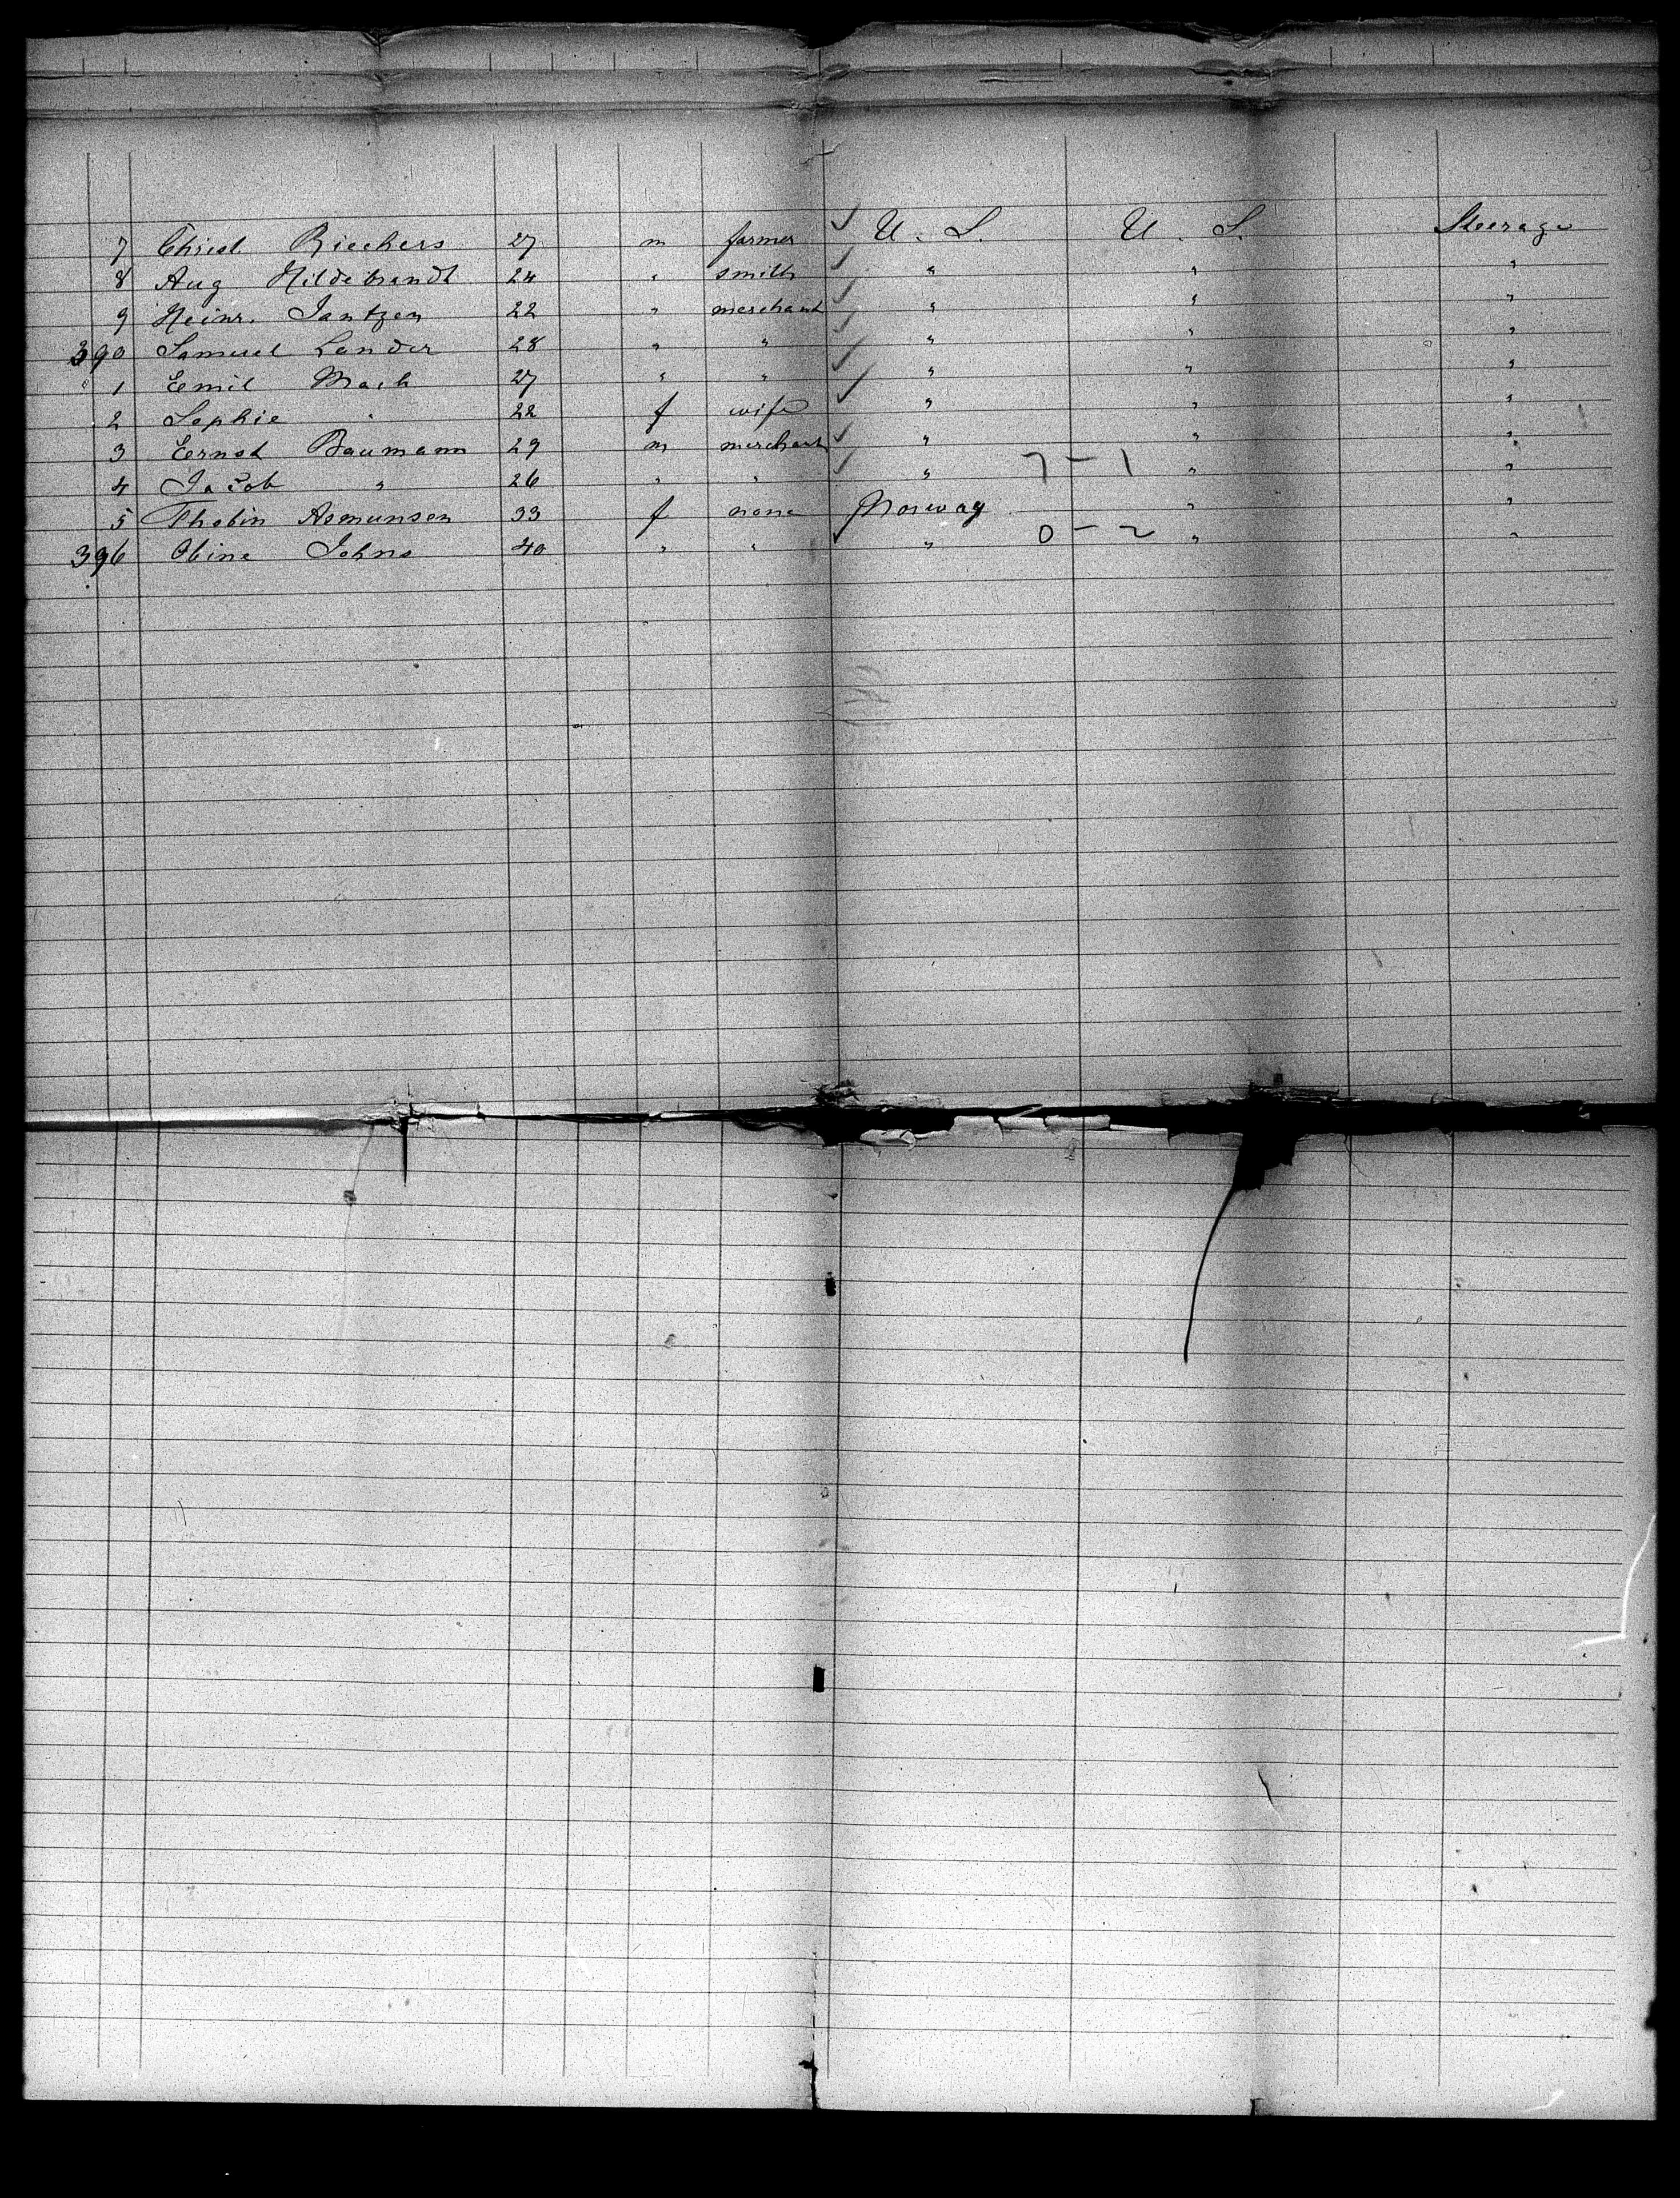 7 Christ. Riechers 27 m farmer ✓ U. S. U. S. Steerage
8 Aug Hildebrandt 24 " smith ✓ " " "
9 Heinr. Jantzen 22 " merchant ✓ " " "
390 Samuel Lander 28 " " ✓ " " "
" 1 Emil Mack 27 " " ✓ " " "
2 Sophie " 22 f wife ✓ " " "
3 Ernst Baumann 29 m merchant ✓ " " "
4 Jacob " 26 " " ✓ " 7-1 " "
5 Thobin Asmunsen 33 f none Norway " "
396 Obine Johns 40 " " ✓ " 0-2 " "